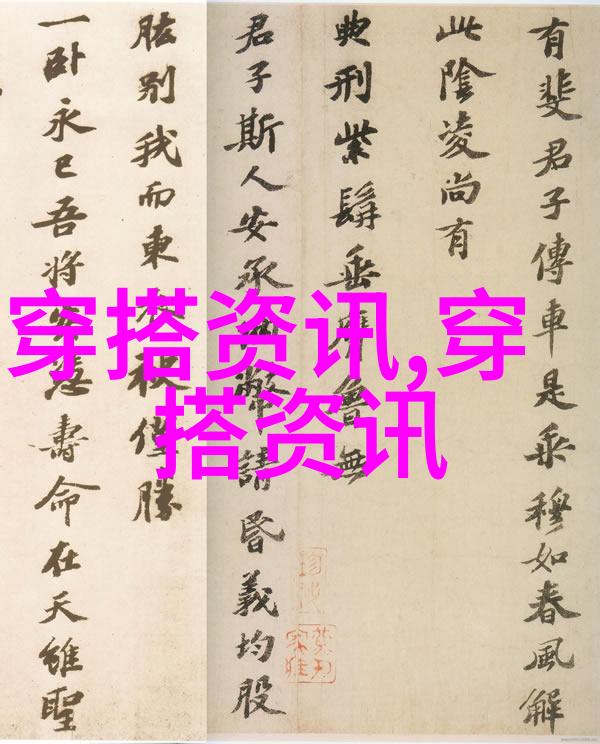 有斐君子傳車是乗穆如春風解
此陰凌尚有
典刑紫髯垂膺魯無
君子斯人安承幣請昏義均股
肱别我而東袂僅勝
一卧永已吾將壽命在天雖聖
穿搭资讯,穿
搭资讯